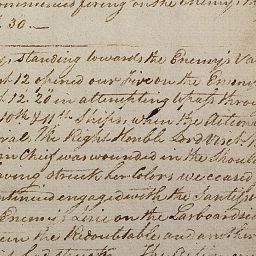 commenced firing on the Enemy's
. 30. —
, standing towards the Enemy's Va
at 12 opened our Fire on the Enem
at 12. 20 in attempting to pass throu
10th & 11th Ships, when the Action
ral, the Right Honble Lord Visct N
in Chief was wounded in the Should
aving struck her colors we ceased
ontinued engaged with the Santiss
Enemy's Line on the Larboard
een the Redoubtable and another